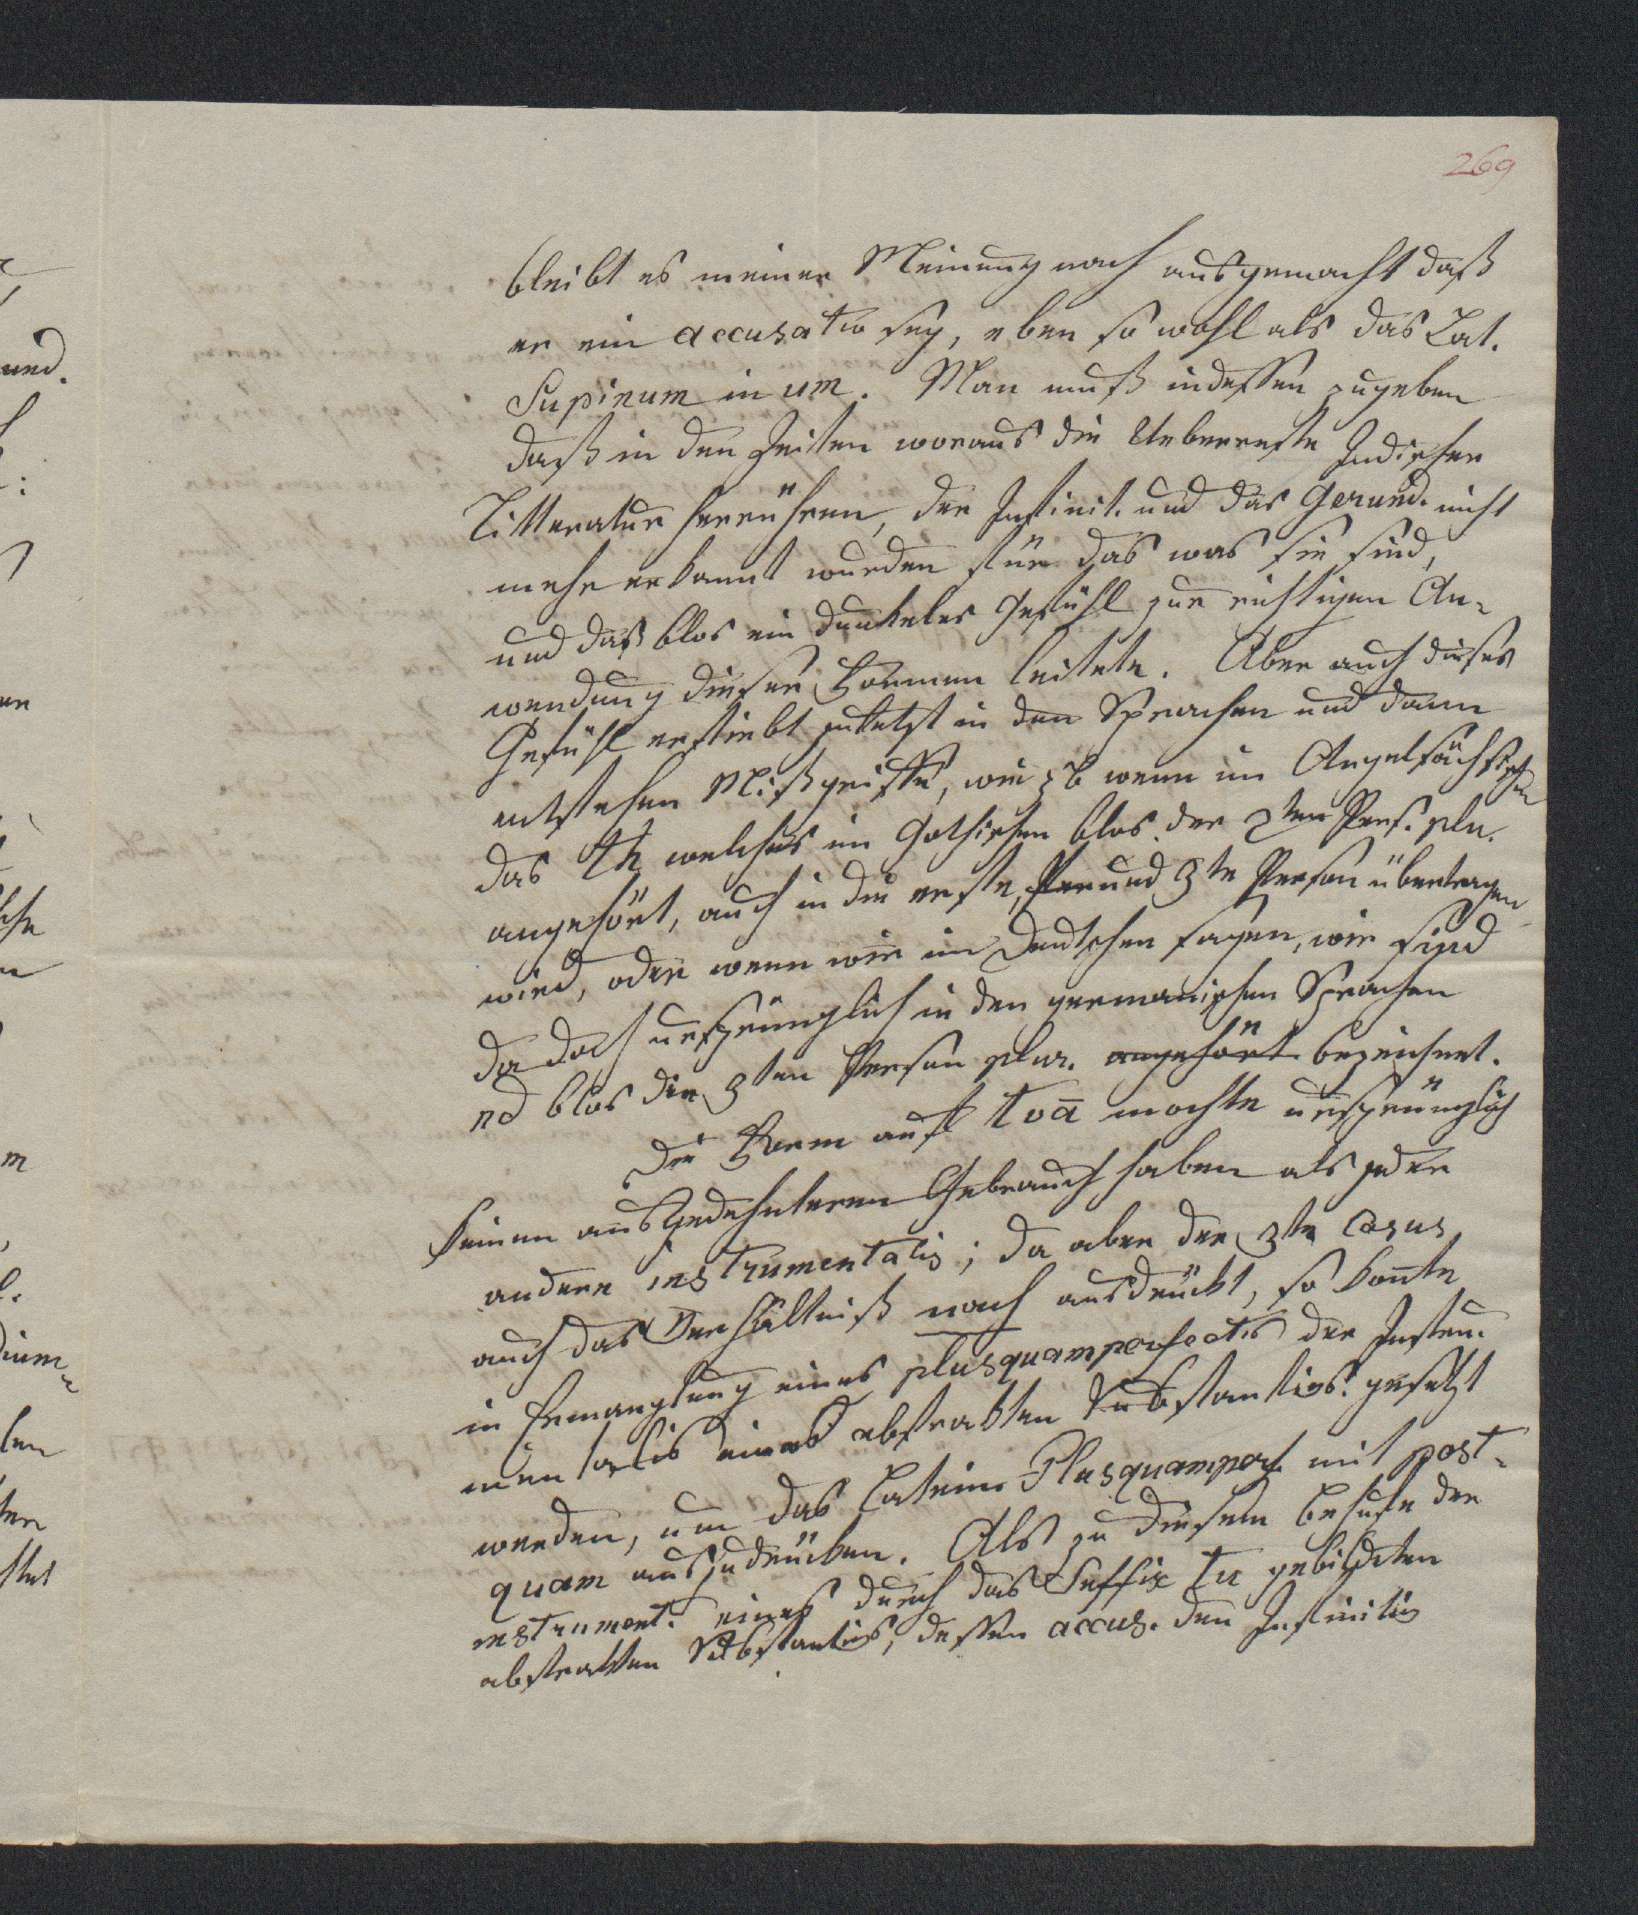 269
bleibt es meiner Meinung nach ausgemacht daß
er ein accusativ sey, eben so wohl als das Lat.
Supinum in um. Man muß indessen zugeben
daß in den Zeiten woraus die Ueberreste Indischer
Litteratur herrühren, der Infinit. und das Gerund. nicht
mehr erkannt wurden für das was sie sind,
und daß blos ein dunkeles Gefühl zur richtigen An-
wendung dieser Formen leitete. Aber auch dieses
Gefühl erstirbt zuletzt in den Sprachen und dann
entstehen Mißgriffe, wie z b wenn im Angelsächsischen
das th welches im Gothischen blos der 2ten Pers. plu.
angehört, auch in die erste, Per und 3te Person übertragen
wird, oder wenn wir im Deutschen sagen, wir sind
da doch ursprünglich in den germanischen Sprachen
nd blos die 3ten Person plur. angehört bezeichnet.
Die Form auf tvā mochte ursprünglich
keinen ausgedehnteren Gebrauch haben als jeder
andere instrumentalis; da aber der 3te Casus
auch das Verhältniß nach ausdrückt, so konnte
in Ermanglung eines plusquamperfectis der Instru-
mentalis eines abstrakten Substantivs. gesetzt
werden, um das Latein. Plusquamperf. mit post-
quam auszudrücken. Als zu diesem Behufe der
instrument. eines durch das Suffix tu gebildeten
abstrakten Substantivs, dessen accus. den Infinitiv
und.